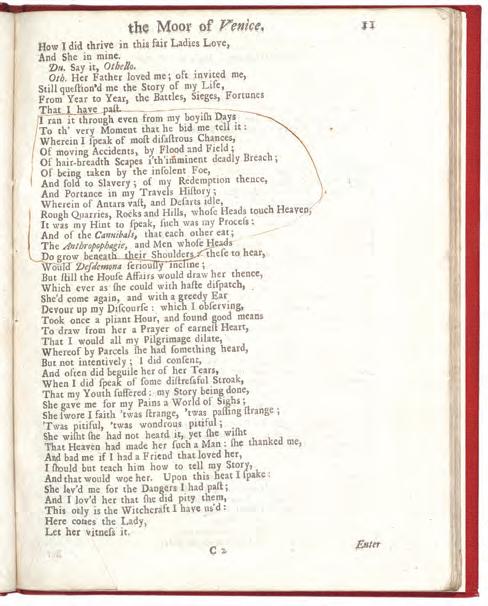 the Moor of Venice. 11
How I did thrive in this fair Ladies Love,
And She in mine.
Du. Say it, Othello.
Oth. Her Father loved me; oft invited me,
Still queſtion'd me the Story of my Life,
From Year to Year, the Battles, Sieges, Fortunes
That I have paſt.
I ran it through even from my boyiſh Days
To th' very Moment that he bid me tell it:
Wherein I ſpeak of moſt diſaſtrous Chances,
Of moving Accidents, by Flood and Field;
Of hair-breadth Scapes i'th'imminent deadly Breach;
Of being taken by the inſolent Foe,
And ſold to Slavery; of my Redemption thence,
And Portance in my Travels Hiſtory;
Wherein of Antars vaſt, and Deſarts idle,
Rough Quarries, Rocks and Hills, whoſe Heads touch Heaven,
It was my Hint to ſpeak, ſuch was my Proceſs:
And of the Cannibals, that each other eat;
The Anthropophagie, and Men whoſe Heads
Do grow beneath their Shoulders: theſe to hear,
Would Deſdemona ſeriouſly incline;
But ſtill the Houſe Affairs would draw her thence,
Which ever as ſhe could with haſte diſpatch,
She'd come again, and with a greedy Ear
Devour up my Diſcourſe: which I obſerving,
Took once a pliant Hour, and found good means
To draw from her a Prayer of earneſt Heart,
That I would all my Pilgrimage dilate,
Whereof by Parcels ſhe had ſomething heard,
But not intentively; I did conſent,
And often did beguile her of her Tears,
When I did ſpeak of ſome diſtreſsful Stroak,
That my Youth ſuffered: my Story being done,
She gave me for my Pains a World of Sighs;
She ſwore I faith 'twas ſtrange, 'twas paſſing ſtrange;
'Twas pitiful, 'twas wondrous pitiful;
She wiſht ſhe had not heard it, yet ſhe wiſht
That Heaven had made her ſuch a Man: ſhe thanked me,
And bad me if I had a Friend that loved her,
I ſhould but teach him how to tell my Story,
And that would woe her. Upon this heat I ſpake:
She lov'd me for the Dangers I had paſt;
And I lov'd her that ſhe did pity them,
This only is the Witchcraft I have us'd:
Here comes the Lady,
Let her witneſs it.
C 2 Enter